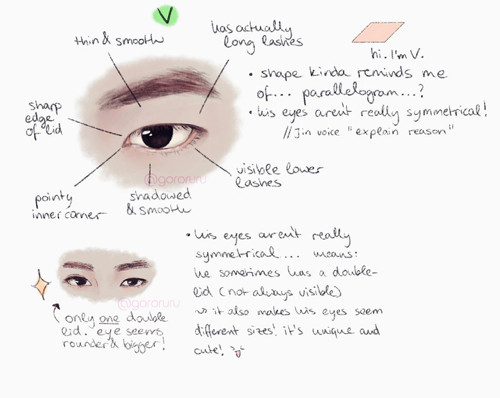 V
thin & smooth
has actually
long lashes
hi. I'm V.
• shape kinda reminds me
of... parallelogram...?
• his eyes aren't really symmetrical!
// Jin voice "explain reason"
sharp
edge
of lid
visible lower
lashes
pointy
inner corner
shadowed
& smooth
@gororu.ru
• his eyes aren't really
symmetrical... means:
he sometimes has a double-
lid (not always visible)
~> it also makes his eyes seem
different sizes! it's unique and
cute!
only one double
lid. eye seems
rounder & bigger!